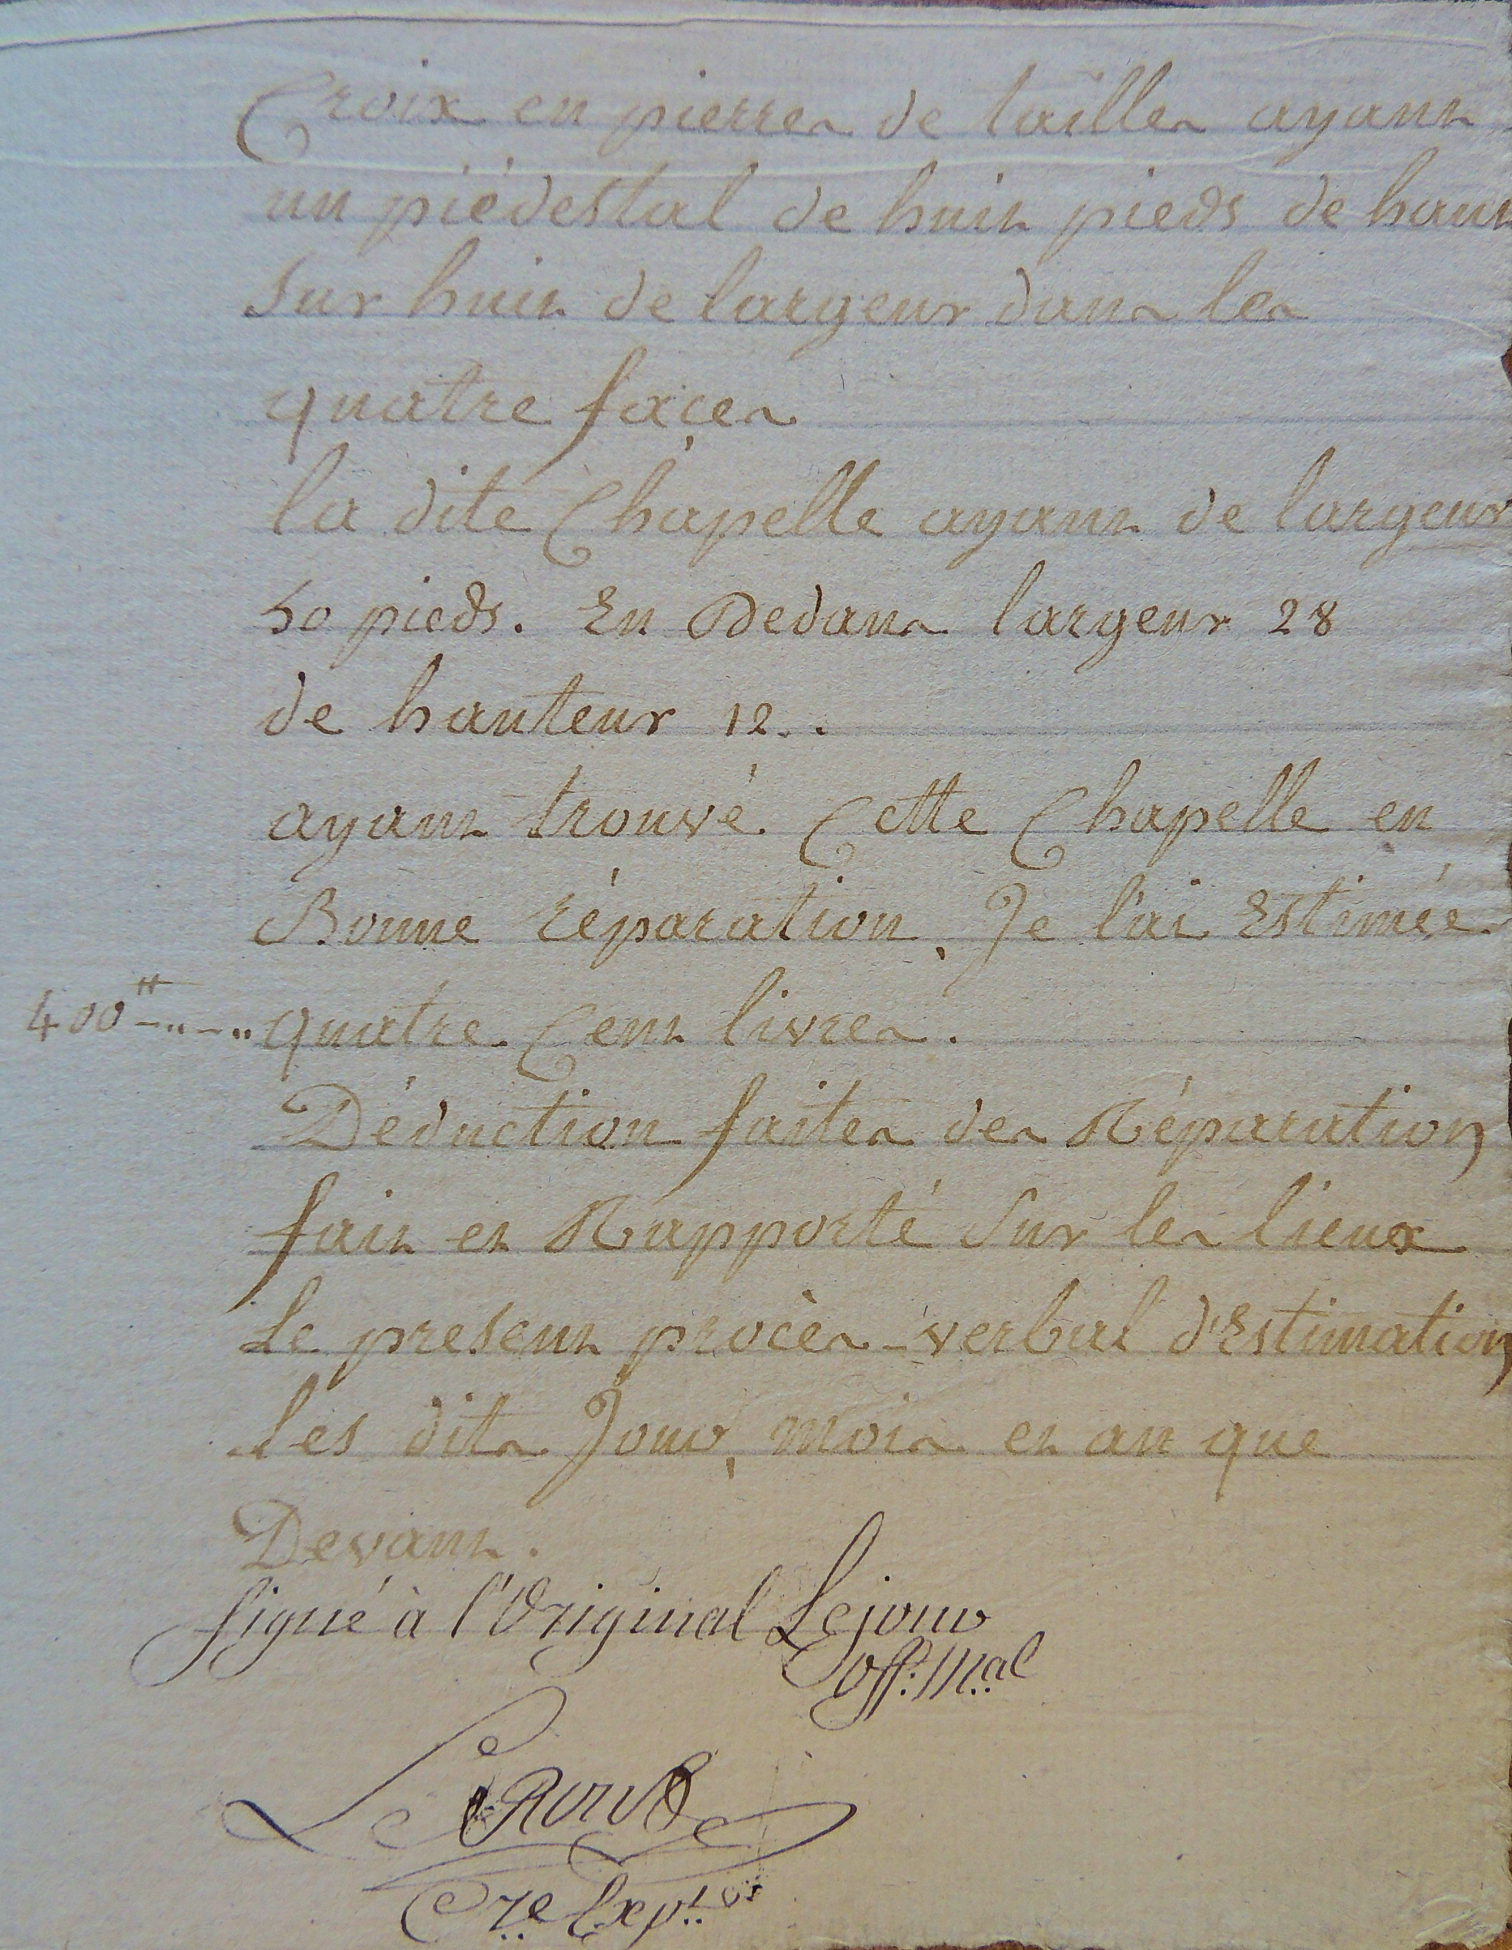 Croix en pierre de taille ayant
un piédestal de huit pieds de haut
sur huit de largeur dans les
quatre faces
la dite Chapelle ayant de largeur
50 pieds. En Dedans largeur 28
de hauteur 12..
ayant trouvé Cette Chapelle en
Bonne réparation, Je l'ai Estimée
400 ₶ quatre Cent livres.
Déduction faites des Réparation
fait et Rapporté Sur les lieux
Le present procès-verbal d'Estimation
Les dits Jour, mois et an que
Devant.
signé à l'Original Lejour
off: M.al
Le
Cre Exp.